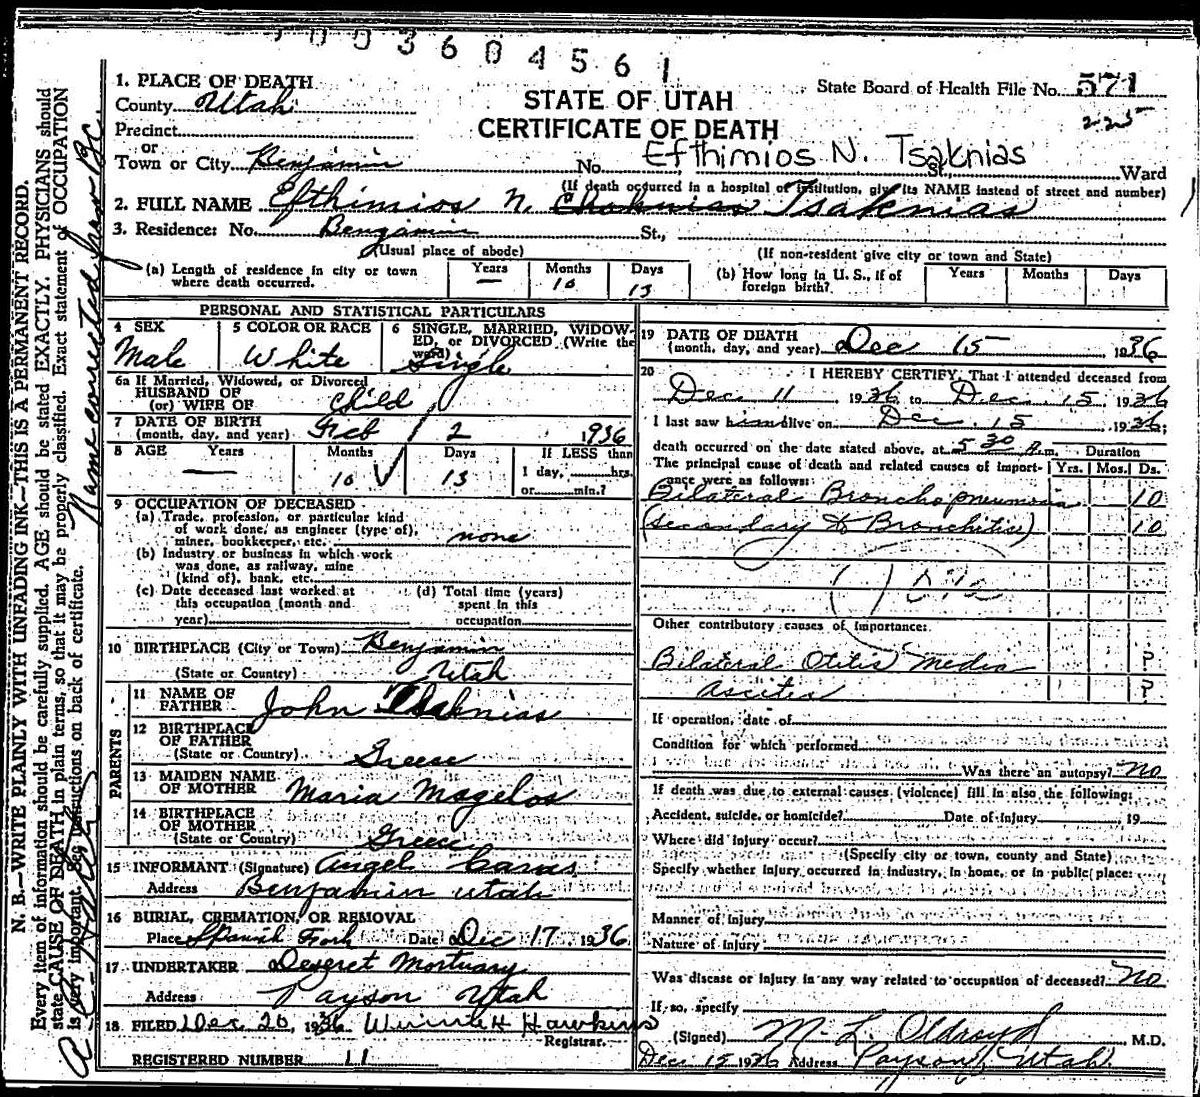 1003604561
1. PLACE OF DEATH
State Board of Health File No. 571
County Utah
STATE OF UTAH
225
Precinct
CERTIFICATE OF DEATH
or
Efthimios N. Tsaknias
Town or City Benjamin No. St., Ward
(If death occurred in a hospital or institution, give its NAME instead of street and number)
2. FULL NAME Efthimios N. Choknias Tsaknias
3. Residence: No. Benjamin St.,
(Usual place of abode) (If non-resident give city or town and State)
(a) Length of residence in city or town where death occurred. Years — Months 10 Days 13 (b) How long in U. S., if of foreign birth? Years Months Days
PERSONAL AND STATISTICAL PARTICULARS
4 SEX 5 COLOR OR RACE 6 SINGLE, MARRIED, WIDOWED, or DIVORCED (Write the word)
Male White Single
6a If Married, Widowed, or Divorced
HUSBAND OF
(or) WIFE OF Child
7 DATE OF BIRTH
(month, day, and year) Feb 2 1936
8 AGE Months Days If LESS than
— 10 13 1 day, hrs.
or min.?
9 OCCUPATION OF DECEASED
(a) Trade, profession, or particular kind
of work done, as engineer (type of),
miner, bookkeeper, etc. none
(b) Industry or business in which work
was done, as railway, mine
(kind of), bank, etc.
(c) Date deceased last worked at
this occupation (month and
year)
(d) Total time (years)
spent in this
occupation
10 BIRTHPLACE (City or Town) Benjamin
(State or Country) Utah
PARENTS
11 NAME OF
FATHER John Tsaknias
12 BIRTHPLACE
OF FATHER
(State or Country) Greese
13 MAIDEN NAME
OF MOTHER Maria Magelos
14 BIRTHPLACE
OF MOTHER
(State or Country) Greece
15 INFORMANT (Signature) Angel Caras
Address Benjamin Utah
16 BURIAL, CREMATION, OR REMOVAL
Place Spanish Fork Date Dec 17 1936
17 UNDERTAKER Deseret Mortuary
Address Payson Utah
18 FILED Dec 20, 1936 Winnie H Hawkins
Registrar.
REGISTERED NUMBER 11
19 DATE OF DEATH
(month, day, and year) Dec 15 1936
20 I HEREBY CERTIFY, That I attended deceased from
Dec 11 1936 to Dec. 15, 1936
I last saw him alive on Dec. 15 1936;
death occurred on the date stated above, at 5 30 A.m. Duration
The principal cause of death and related causes of importance were as follows: Yrs. Mos. Ds.
Bilateral Bronchopneumonia 10
(Secondary to Bronchitis) 10
Other contributory causes of importance:
Bilateral Otitis Media ?
Ascites ?
If operation, date of
Condition for which performed
Was there an autopsy? no
If death was due to external causes (violence) fill in also the following:
Accident, suicide, or homicide? Date of injury , 19
Where did injury occur?
(Specify city or town, county and State)
Specify whether injury occurred in industry, in home, or in public place:
Manner of injury
Nature of injury
Was disease or injury in any way related to occupation of deceased? no
If so, specify
(Signed) M. L. Oldroyd M.D.
Dec 15 1936 Address Payson, Utah.
N. B.—WRITE PLAINLY WITH UNFADING INK—THIS IS A PERMANENT RECORD.
Every item of information should be carefully supplied. AGE should be stated EXACTLY. PHYSICIANS should
state CAUSE OF DEATH in plain terms, so that it may be properly classified. Exact statement of OCCUPATION
is very important. See instructions on back of certificate.
Name corrected from BC